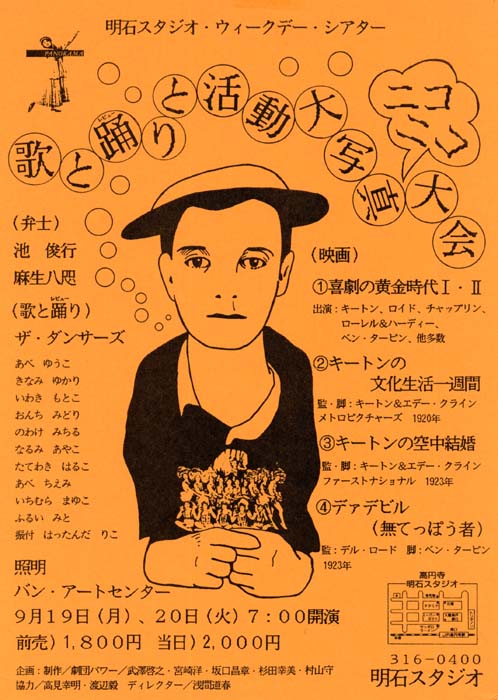 明石スタジオ・ウィークデー・シアター
PANORAMA
ニコニコ
歌と踊りと活動大写真大会
レビュー
(弁士)
池 俊行
麻生八咫
(歌と踊り)
レビュー
ザ・ダンサーズ
あべ ゆうこ
きなみ ゆかり
いわき もとこ
おんち みどり
のわけ みちる
なるみ あやこ
たてわき はるこ
あべ ちえみ
いちむら まゆこ
ふるい みと
振付 はったんだ りこ
照明
バン・アートセンター
(映画)
①喜劇の黄金時代Ⅰ・Ⅱ
出演:キートン、ロイド、チャップリン、
ローレル&ハーディー、
ベン・タービン、他多数
②キートンの
文化生活一週間
監・脚:キートン&エデー・クライン
メトロピクチャーズ 1920年
③キートンの空中結婚
監・脚:キートン&エデー・クライン
ファーストナショナル 1923年
④デァデビル
(無てっぽう者)
監:デル・ロード 脚:ベン・タービン
1923年
9月19日(月)、20日(火)7:00開演
前売)1,800円 当日)2,000円
企画:制作/劇団パワー/武澤啓之・宮崎洋・坂口昌章・杉田幸美・村山守
協力/高見幸明・渡辺毅 ディレクター/浅間道春
高円寺
明石スタジオ
316-0400
明石スタジオ